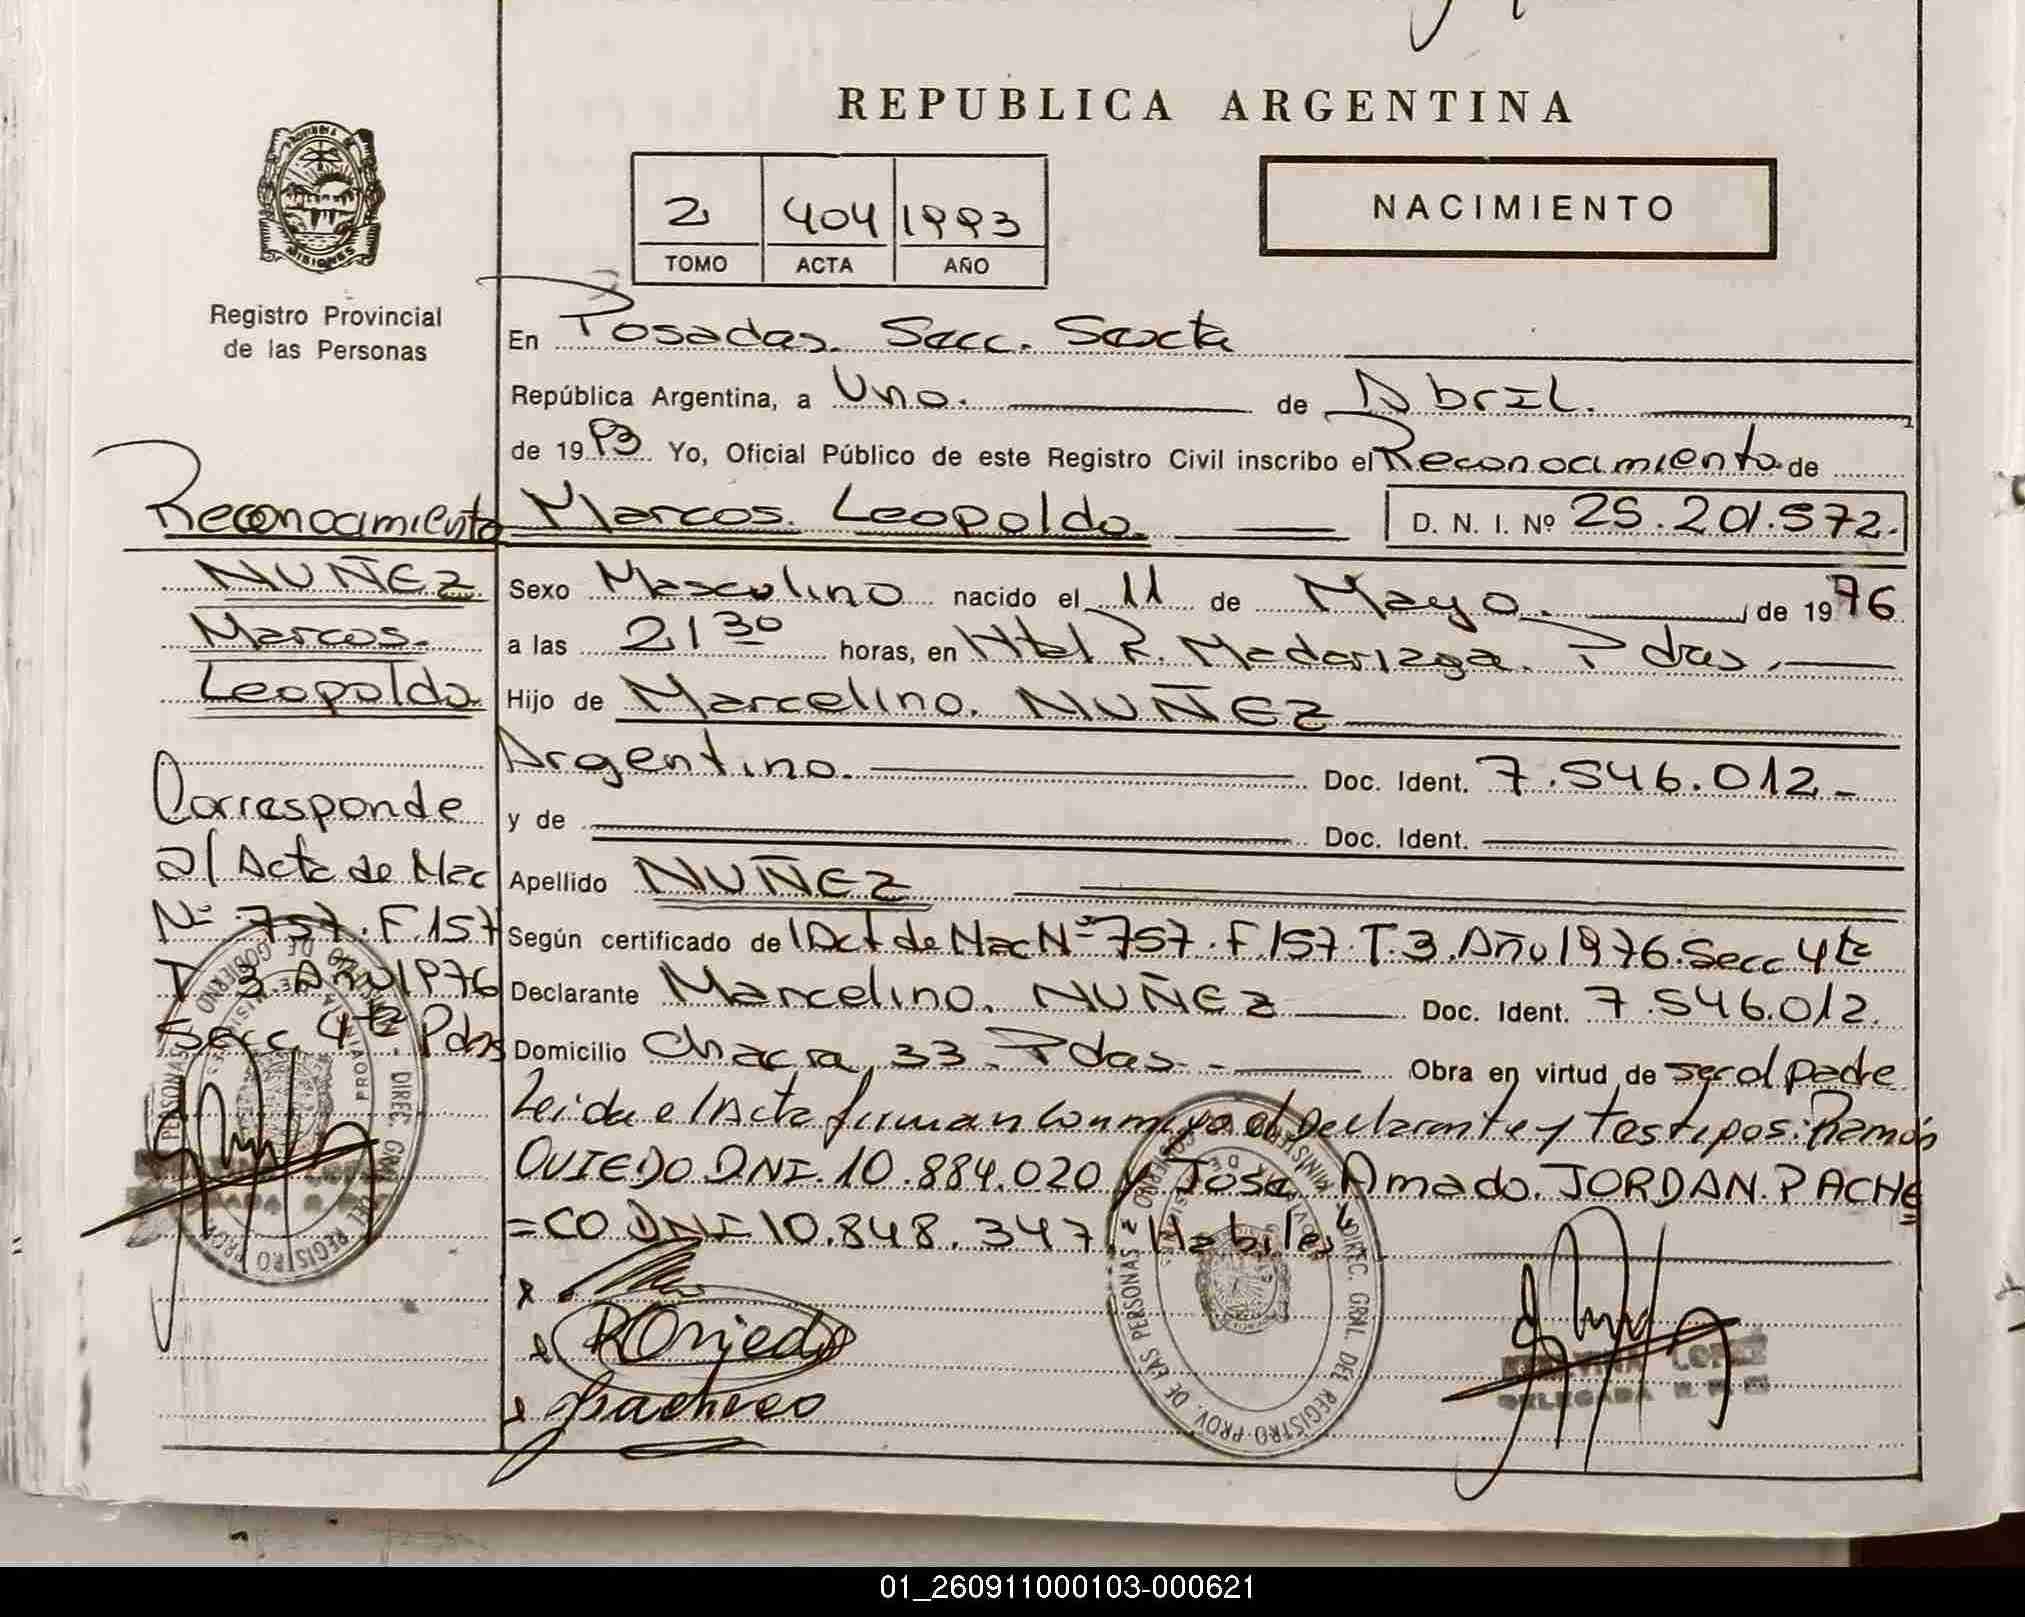 REPUBLICA ARGENTINA
2 404 1993
TOMO ACTA AÑO
NACIMIENTO
MISIONES
Registro Provincial
de las Personas
En Posadas. Secc. Sexta
República Argentina, a Uno. de Abril.
de 1993 Yo, Oficial Público de este Registro Civil inscribo el Reconocimiento de
Marcos. Leopoldo. D. N. I. Nº 25.201.572.
Sexo Masculino nacido el 11 de Mayo. de 1976
a las 21 30 horas, en Htal R. Madariaga. Pdas.
Hijo de Marcelino. NUÑEZ
Argentino. Doc. Ident. 7.546.012-
y de Doc. Ident.
Apellido NUÑEZ
Según certificado de l Act de Nac Nº 757. F.157. T.3. Año 1976. Secc 4ta
Declarante Marcelino. NUÑEZ Doc. Ident. 7.546.012.
Domicilio Chacra 33. Pdas. Obra en virtud de ser el padre
Leida el Acta firman conmigo el Declarante y testigos: Ramón
OVIEDO DNI. 10.884.020 y José Amado. JORDAN. PACHE
=CO DNI 10.848.347. Habiles
x
x ROviedo
x Pacheco
Reconocimiento
NUÑEZ
Marcos.
Leopoldo
Corresponde
al Acta de Nac
Nº 757. F.157
T. 3. Año 1976
Secc 4ta Pdas
DIREC. GRAL. DEL REGISTRO PROV. DE LAS PERSONAS
MINISTERIO DE GOBIERNO
DIREC. GRAL. DEL REGISTRO PROV. DE LAS PERSONAS
MINISTERIO DE GOBIERNO
LOPEZ
DELEGADA
01_260911000103-000621